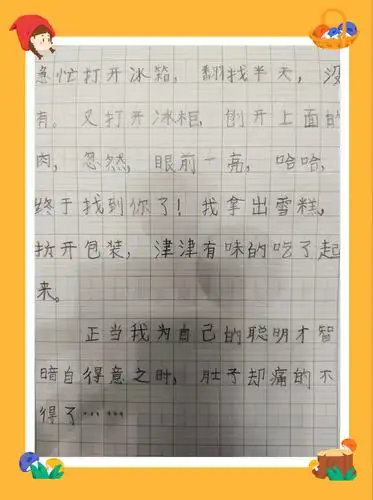 急忙打开冰箱，翻找半天，没
有。又打开冰柜，刨开上面的
肉，忽然，眼前一亮，哈哈，
终于找到你了！我拿出雪糕，
拆开包装，津津有味的吃了起
来。
正当我为自己的聪明才智
暗自得意之时，肚子却痛的不
得了……